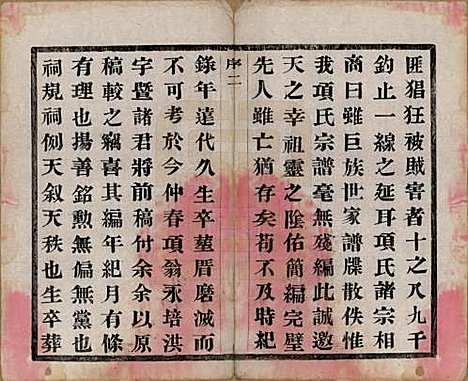 匪猖狂被賊害者十之八九千
鈞止一線之延耳項氏諸宗相
商曰雖巨族世家譜牒散佚惟
我項氏宗譜毫無殘編此誠邀
天之幸祖靈之陰佑簡編完璧
先人雖亡猶存矣苟不及時紀
序 二
錄年遠代久生卒塟厝磨滅而
不可考於今仲春項翁永培洪
宇暨諸君將前稿付余余以原
稿較之竊喜其編年紀月有條
有理也揚善銘勲無偏無黨也
祠規祠例天叙天秩也生卒葬